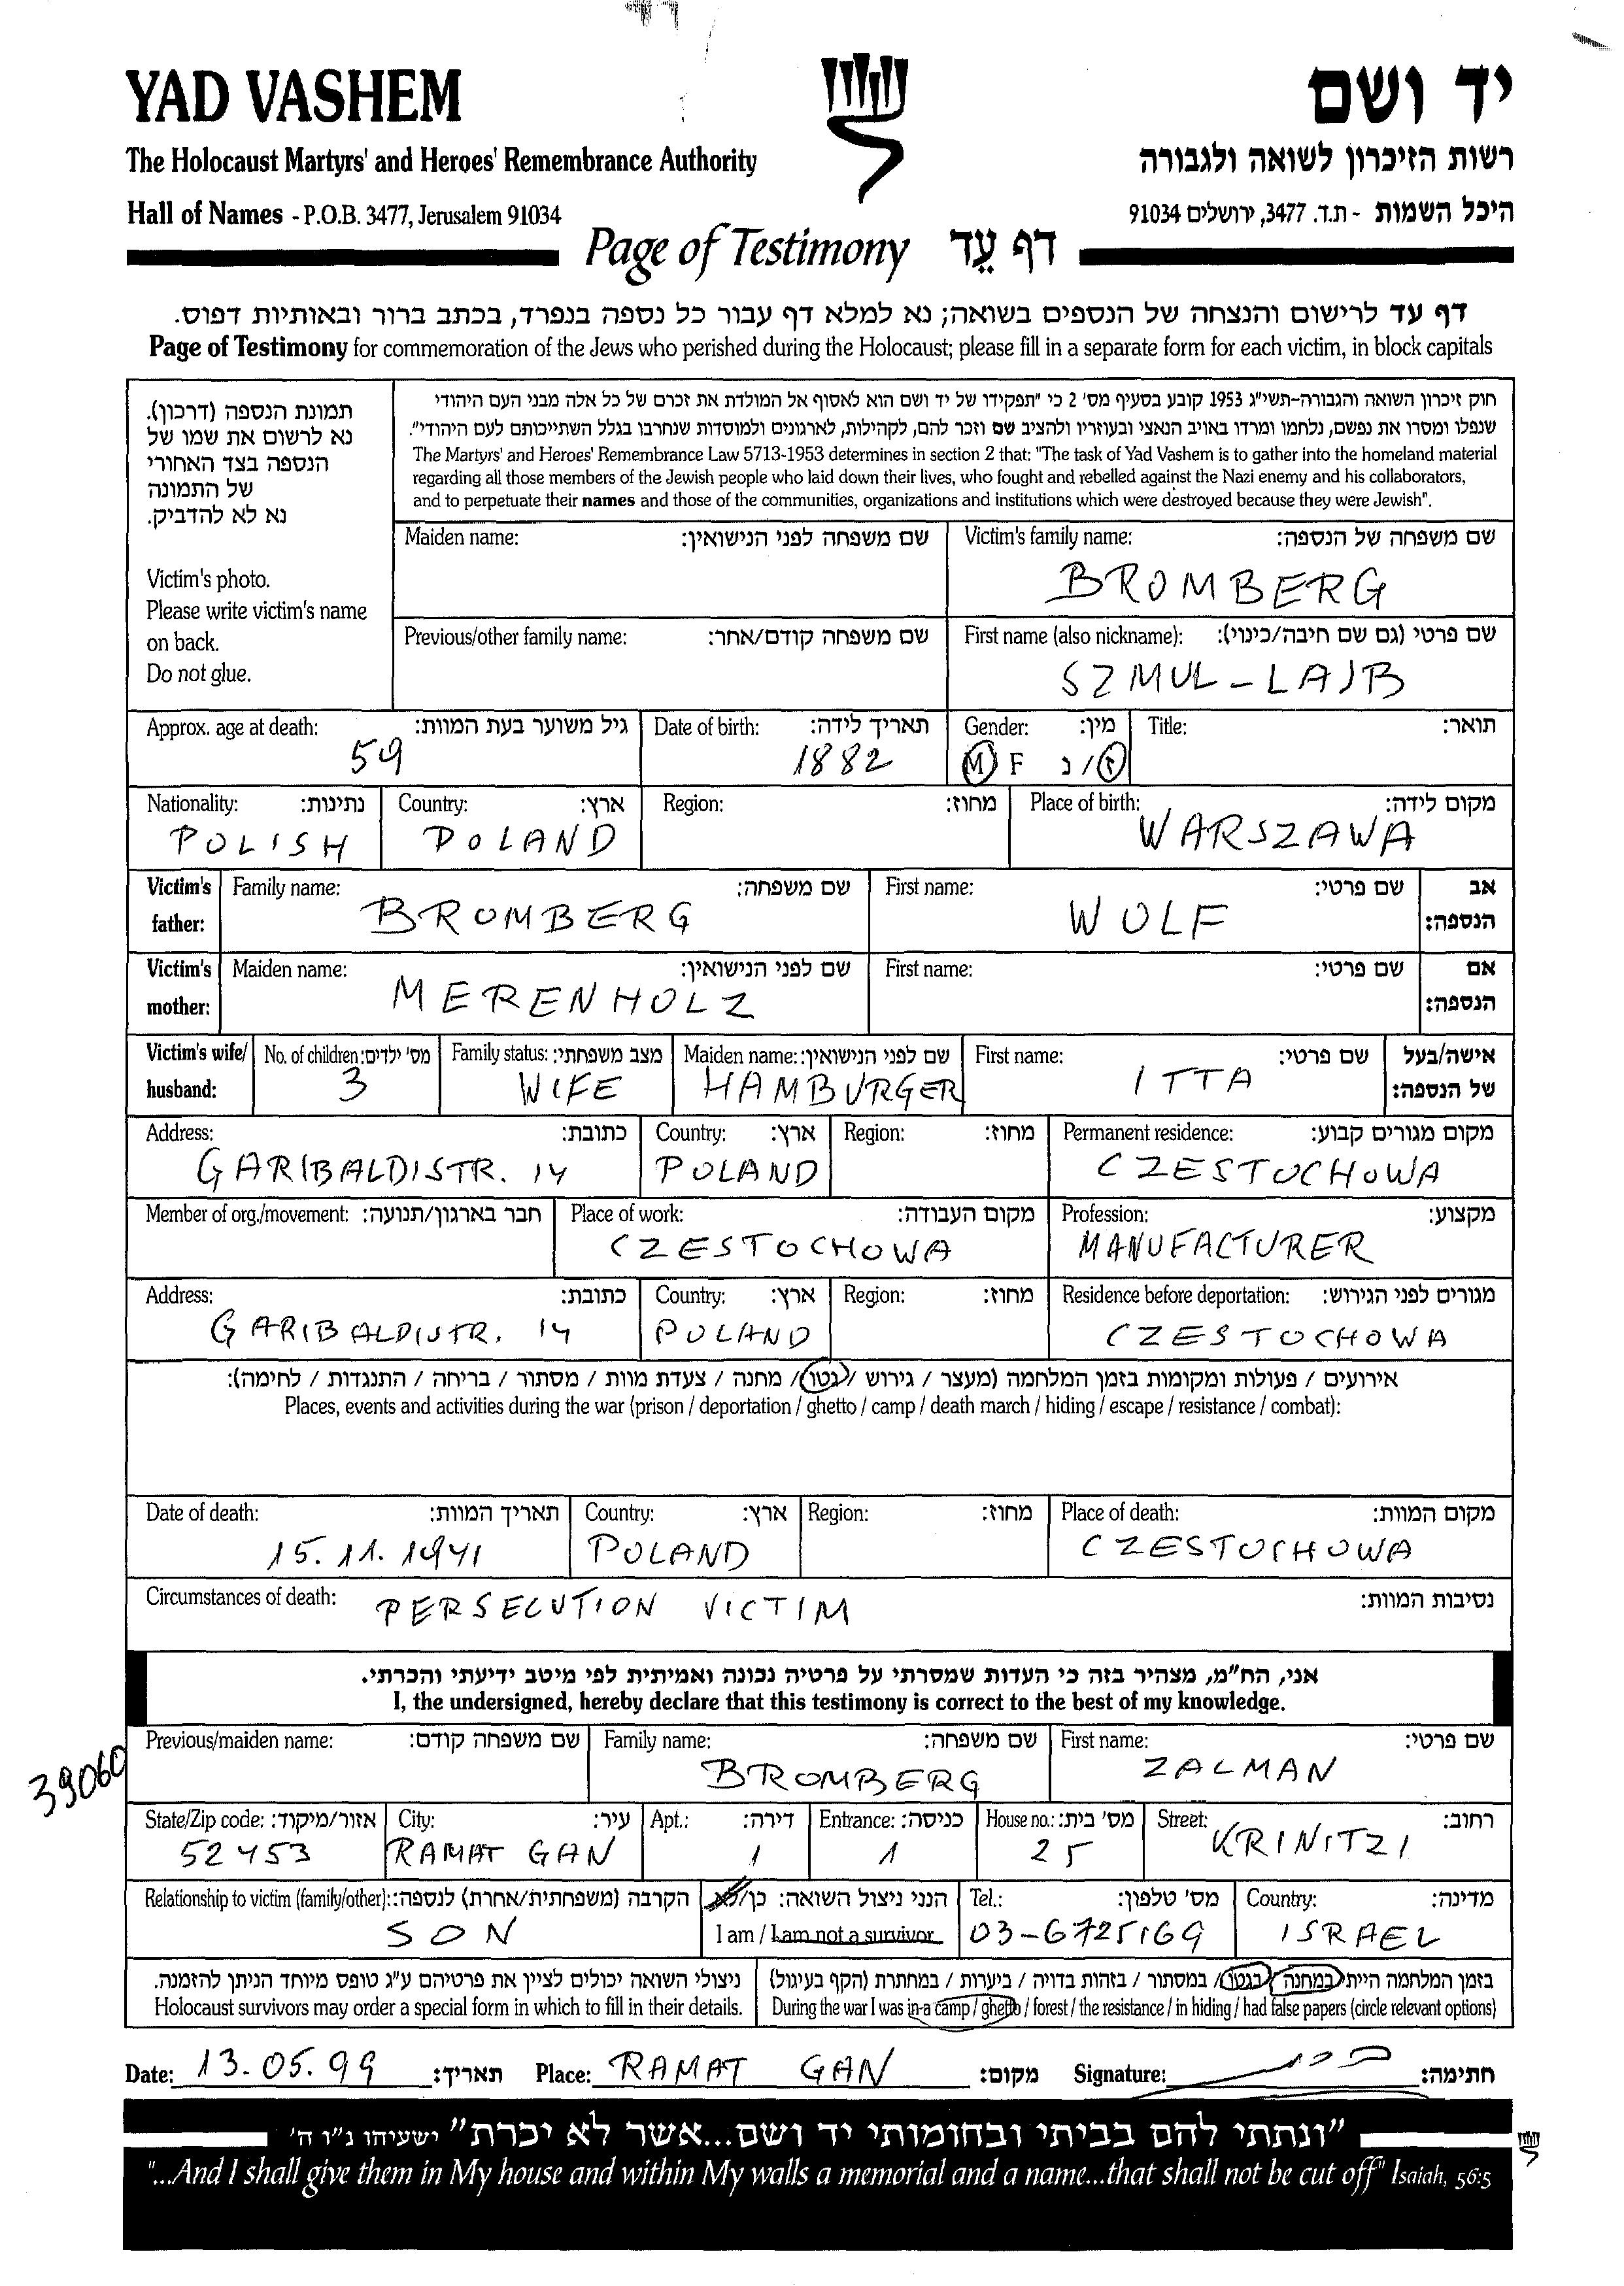 YAD VASHEM
יד ושם
The Holocaust Martyrs' and Heroes' Remembrance Authority
רשות הזיכרון לשואה ולגבורה
Hall of Names - P.O.B. 3477, Jerusalem 91034
היכל השמות - ת.ד. 3477, ירושלים 91034
Page of Testimony דף עֵד
דף עד לרישום והנצחה של הנספים בשואה; נא למלא דף עבור כל נספה בנפרד, בכתב ברור ובאותיות דפוס.
Page of Testimony for commemoration of the Jews who perished during the Holocaust; please fill in a separate form for each victim, in block capitals
תמונת הנספה (דרכון).
נא לרשום את שמו של
הנספה בצד האחורי
של התמונה
נא לא להדביק.
Victim's photo.
Please write victim's name
on back.
Do not glue.
חוק זיכרון השואה והגבורה-תשי"ג 1953 קובע בסעיף מס' 2 כי "תפקידו של יד ושם הוא לאסוף אל המולדת את זכרם של כל אלה מבני העם היהודי
שנפלו ומסרו את נפשם, נלחמו ומרדו באויב הנאצי ובעוזריו ולהציב שם וזכר להם, לקהילות, לארגונים ולמוסדות שנחרבו בגלל השתייכותם לעם היהודי".
The Martyrs' and Heroes' Remembrance Law 5713-1953 determines in section 2 that: "The task of Yad Vashem is to gather into the homeland material
regarding all those members of the Jewish people who laid down their lives, who fought and rebelled against the Nazi enemy and his collaborators,
and to perpetuate their names and those of the communities, organizations and institutions which were destroyed because they were Jewish".
Maiden name: שם משפחה לפני הנישואין:
Victim's family name: שם משפחה של הנספה:
BROMBERG
Previous/other family name: שם משפחה קודם/אחר:
First name (also nickname): שם פרטי (גם שם חיבה/כינוי):
SZMUL-LAJB
Approx. age at death: גיל משוער בעת המוות:
59
Date of birth: תאריך לידה:
1882
Gender: מין:
M F ז/נ
Title: תואר:
Nationality: נתינות:
POLISH
Country: ארץ:
POLAND
Region: מחוז:
Place of birth: מקום לידה:
WARSZAWA
Victim's father:
Family name: שם משפחה:
BROMBERG
First name: שם פרטי:
WULF
אב הנספה:
Victim's mother:
Maiden name: שם לפני הנישואין:
MERENHOLZ
First name: שם פרטי:
אם הנספה:
Victim's wife/ husband:
No. of children: מס' ילדים:
3
Family status: מצב משפחתי:
WIFE
Maiden name: שם לפני הנישואין:
HAMBURGER
First name: שם פרטי:
ITTA
אישה/בעל של הנספה:
Address: כתובת:
GARIBALDISTR. 14
Country: ארץ:
POLAND
Region: מחוז:
Permanent residence: מקום מגורים קבוע:
CZESTOCHOWA
Member of org./movement: חבר בארגון/תנועה:
Place of work: מקום העבודה:
CZESTOCHOWA
Profession: מקצוע:
MANUFACTURER
Address: כתובת:
GARIBALDISTR. 14
Country: ארץ:
POLAND
Region: מחוז:
Residence before deportation: מגורים לפני הגירוש:
CZESTOCHOWA
אירועים / פעולות ומקומות בזמן המלחמה (מעצר / גירוש / גטו / מחנה / צעדת מוות / מסתור / בריחה / התנגדות / לחימה):
Places, events and activities during the war (prison / deportation / ghetto / camp / death march / hiding / escape / resistance / combat):
Date of death: תאריך המוות:
15.11.1941
Country: ארץ:
POLAND
Region: מחוז:
Place of death: מקום המוות:
CZESTOCHOWA
Circumstances of death: נסיבות המוות:
PERSECUTION VICTIM
אני, הח"מ, מצהיר בזה כי העדות שמסרתי על פרטיה נכונה ואמיתית לפי מיטב ידיעתי והכרתי.
I, the undersigned, hereby declare that this testimony is correct to the best of my knowledge.
39060
Previous/maiden name: שם משפחה קודם:
Family name: שם משפחה:
BROMBERG
First name: שם פרטי:
ZALMAN
State/Zip code: אזור/מיקוד:
52453
City: עיר:
RAMAT GAN
Apt.: דירה:
1
Entrance: כניסה:
1
House no.: מס' בית:
25
Street: רחוב:
KRINITZI
Relationship to victim (family/other): הקרבה (משפחתית/אחרת) לנספה:
SON
הנני ניצול השואה: כן/לא
I am / I am not a survivor
Tel.: מס' טלפון:
03-6725169
Country: מדינה:
ISRAEL
ניצולי השואה יכולים לציין את פרטיהם ע"ג טופס מיוחד הניתן להזמנה.
Holocaust survivors may order a special form in which to fill in their details.
בזמן המלחמה הייתי במחנה / בגטו / במסתור / בזהות בדויה / ביערות / במחתרת (הקף בעיגול)
During the war I was in a camp / ghetto / forest / the resistance / in hiding / had false papers (circle relevant options)
Date: 13.05.99 תאריך: Place: RAMAT GAN מקום: Signature: חתימה:
"ונתתי להם בביתי ובחומותי יד ושם...אשר לא יכרת" ישעיהו נ"ו ה'
"...And I shall give them in My house and within My walls a memorial and a name...that shall not be cut off" Isaiah, 56:5